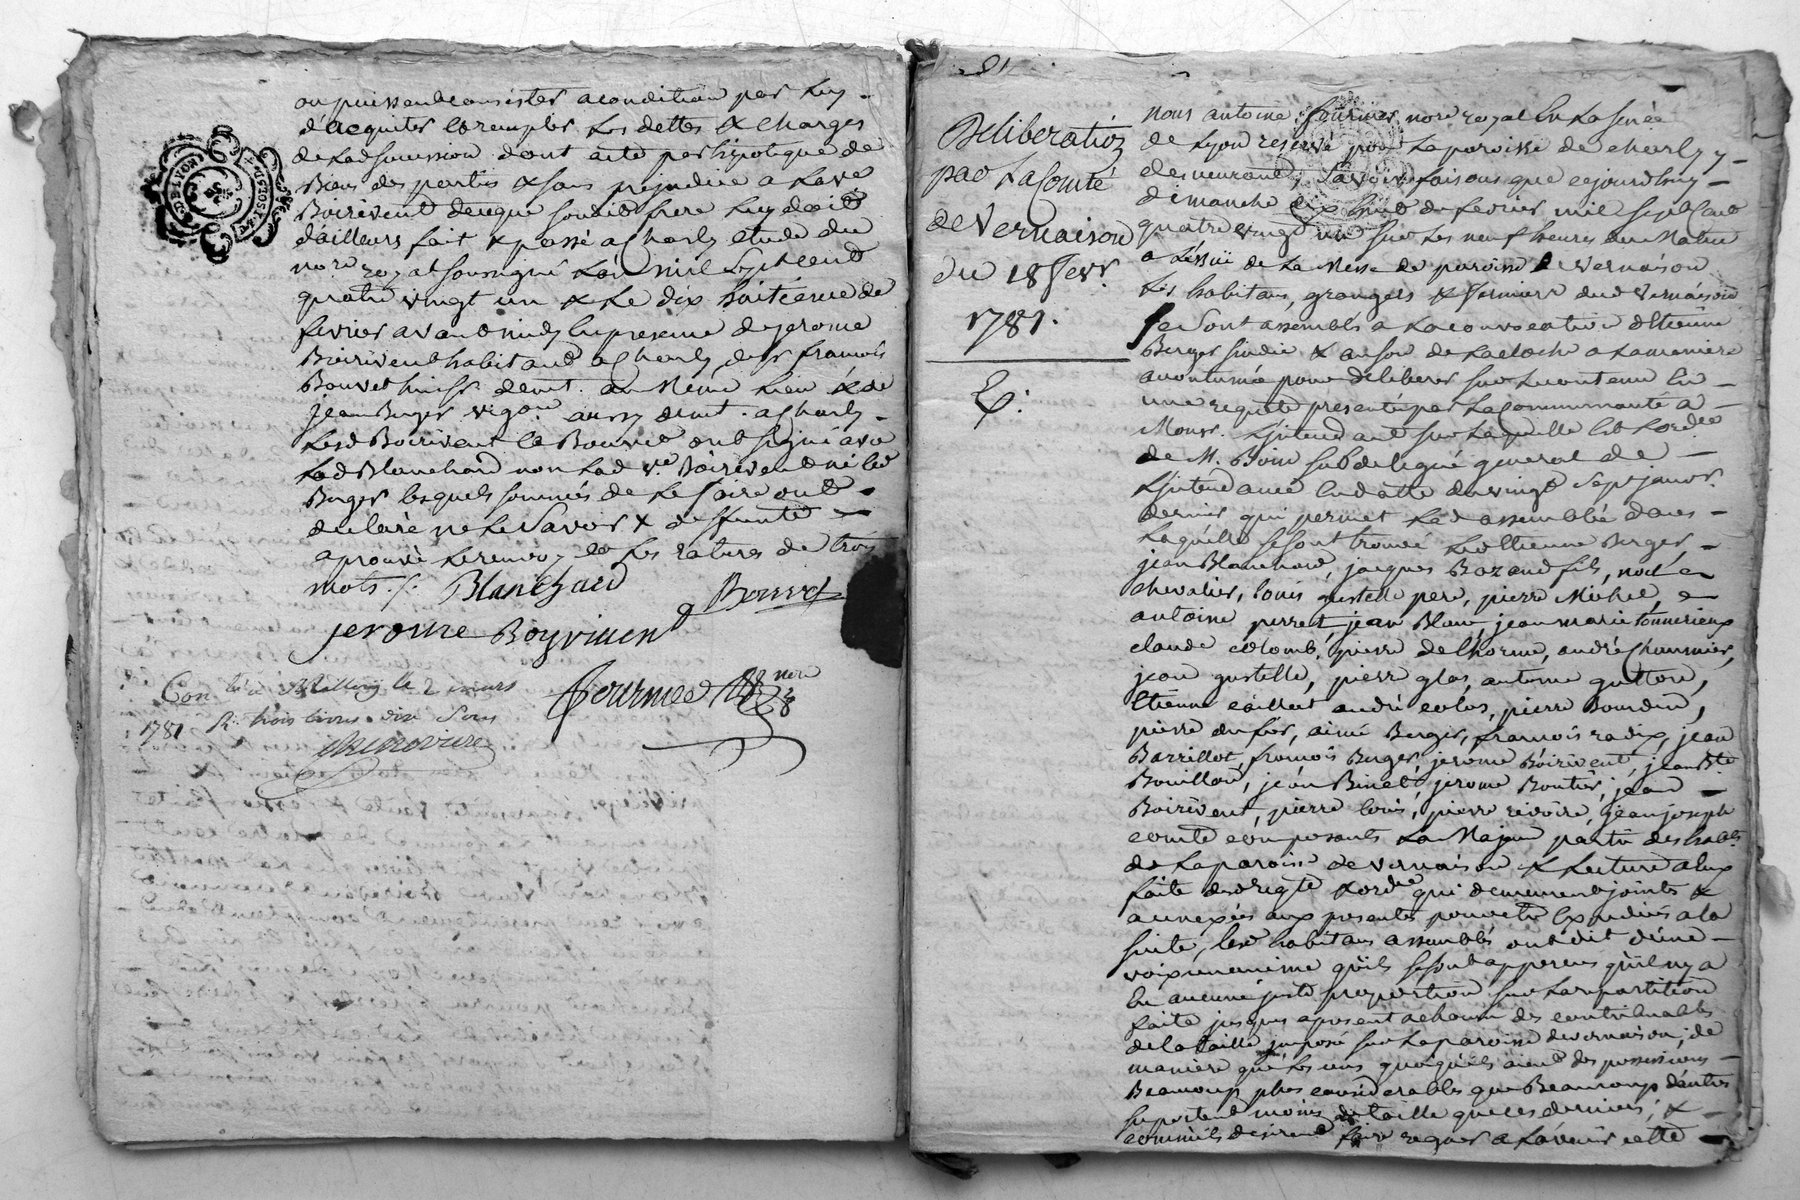 ou puissent consister a condition par luy
d'acquiter et remplir les dettes & charges
de lad succession dont acte par hipoteque de
Biens des parties & sans prejudice a la ve
Boirivent de ce que sondit frere luy doit
d'ailleurs fait & passé a Charly etude du
nore royal soussigné l'an mil sept cent
quatre vingt un & le dix huitieme de
fevrier avant midy en presence de jerome
Boirivent habitant a Charly, de sr françois
Bouvet huissr demt. au Même lieu & de
jean Berger vigon aussy demt. a Charly
Lesd Boirivent et Bouvet ont signé avec
Lad Blanchard non Lad ve Boirivent ni led
Berger lesquels sommés de le faire ont
declaré ne le savoir & de
aprouvé le renvoy et les ratures de trois
mots ./. Blanchard Bouvet
jerome Boyrivent
Fournier nore
Con le 2 mars
1781 R. trois livres dix sous
DE LYON
Deliberation
par La Comté
de Vernaison
du 18 fevr.
1781.
E:
Nous antoine fournier nore royal en la sené
de Lyon reservé pour la paroisse de charly y
demeurant, savoir faisons que cejourdhuy
dimanche dix huit de fevrier mil sept cent
quatre vingt un sur les neuf heures du Matin
a L'issüe de la Messe de paroisse de vernaison
Les habitans, grangers & fermiers dud vernaison
se sont assemblés a la convocation d'Etienne
Berger sindic & au son de la cloche a la maniere
accoutumée pour deliberer sur le contenu en
une requete presentée par la Communauté a
Monsr. L'jntendant sur laquelle est L'ordce
de M. Boin subdelegué general de
L'jntendance en datte du vingt sept janvr.
dernier qui permet lad assemblée dans
Laquelle se sont trouvé led Etienne Berger,
jean Blanchard, jacques Bazaud fils, noel
chevalier, louis gustelle pere, pierre Michel,
antoine perret, jean Blanc, jean marie tonnerieux
claude colomb, pierre delhorme, andré Chammier,
jean gustelle, pierre glas, antoine guttore,
Etienne caillot andré colas, pierre Bourdin,
pierre dufier, aimé Berger, françois radix, jean
Barrillot, françois Berger, jerome Boirivent, jean Bte
Bouillon, jean Binet, jerome Boutier, jean
Boirivent, pierre louis, pierre revoire, & jean joseph
comte composants La Majeure partie des habts
de la paroisse de vernaison & Lecture a eux
faite dud reqte & ordce qui demeurent joints &
annexées aux presentes pour etre expediées a la
suite, lesd habitans assemblés ont dit d'une
voix unanime qu'ils se sont apperçus qu'il n'y a
Eu aucune juste proportion sur la repartition
faite jusques a present a chacun des contribuables
de la taille jmposée sur la paroisse de vernaison, de
maniere que les uns quoiqu'ils aient des possessions
Beaucoup plus considerables que Beaucoup d'autres
supportent moins de taille que ces derniers; &
comm'ils desirent faire regner a L'avenir cette